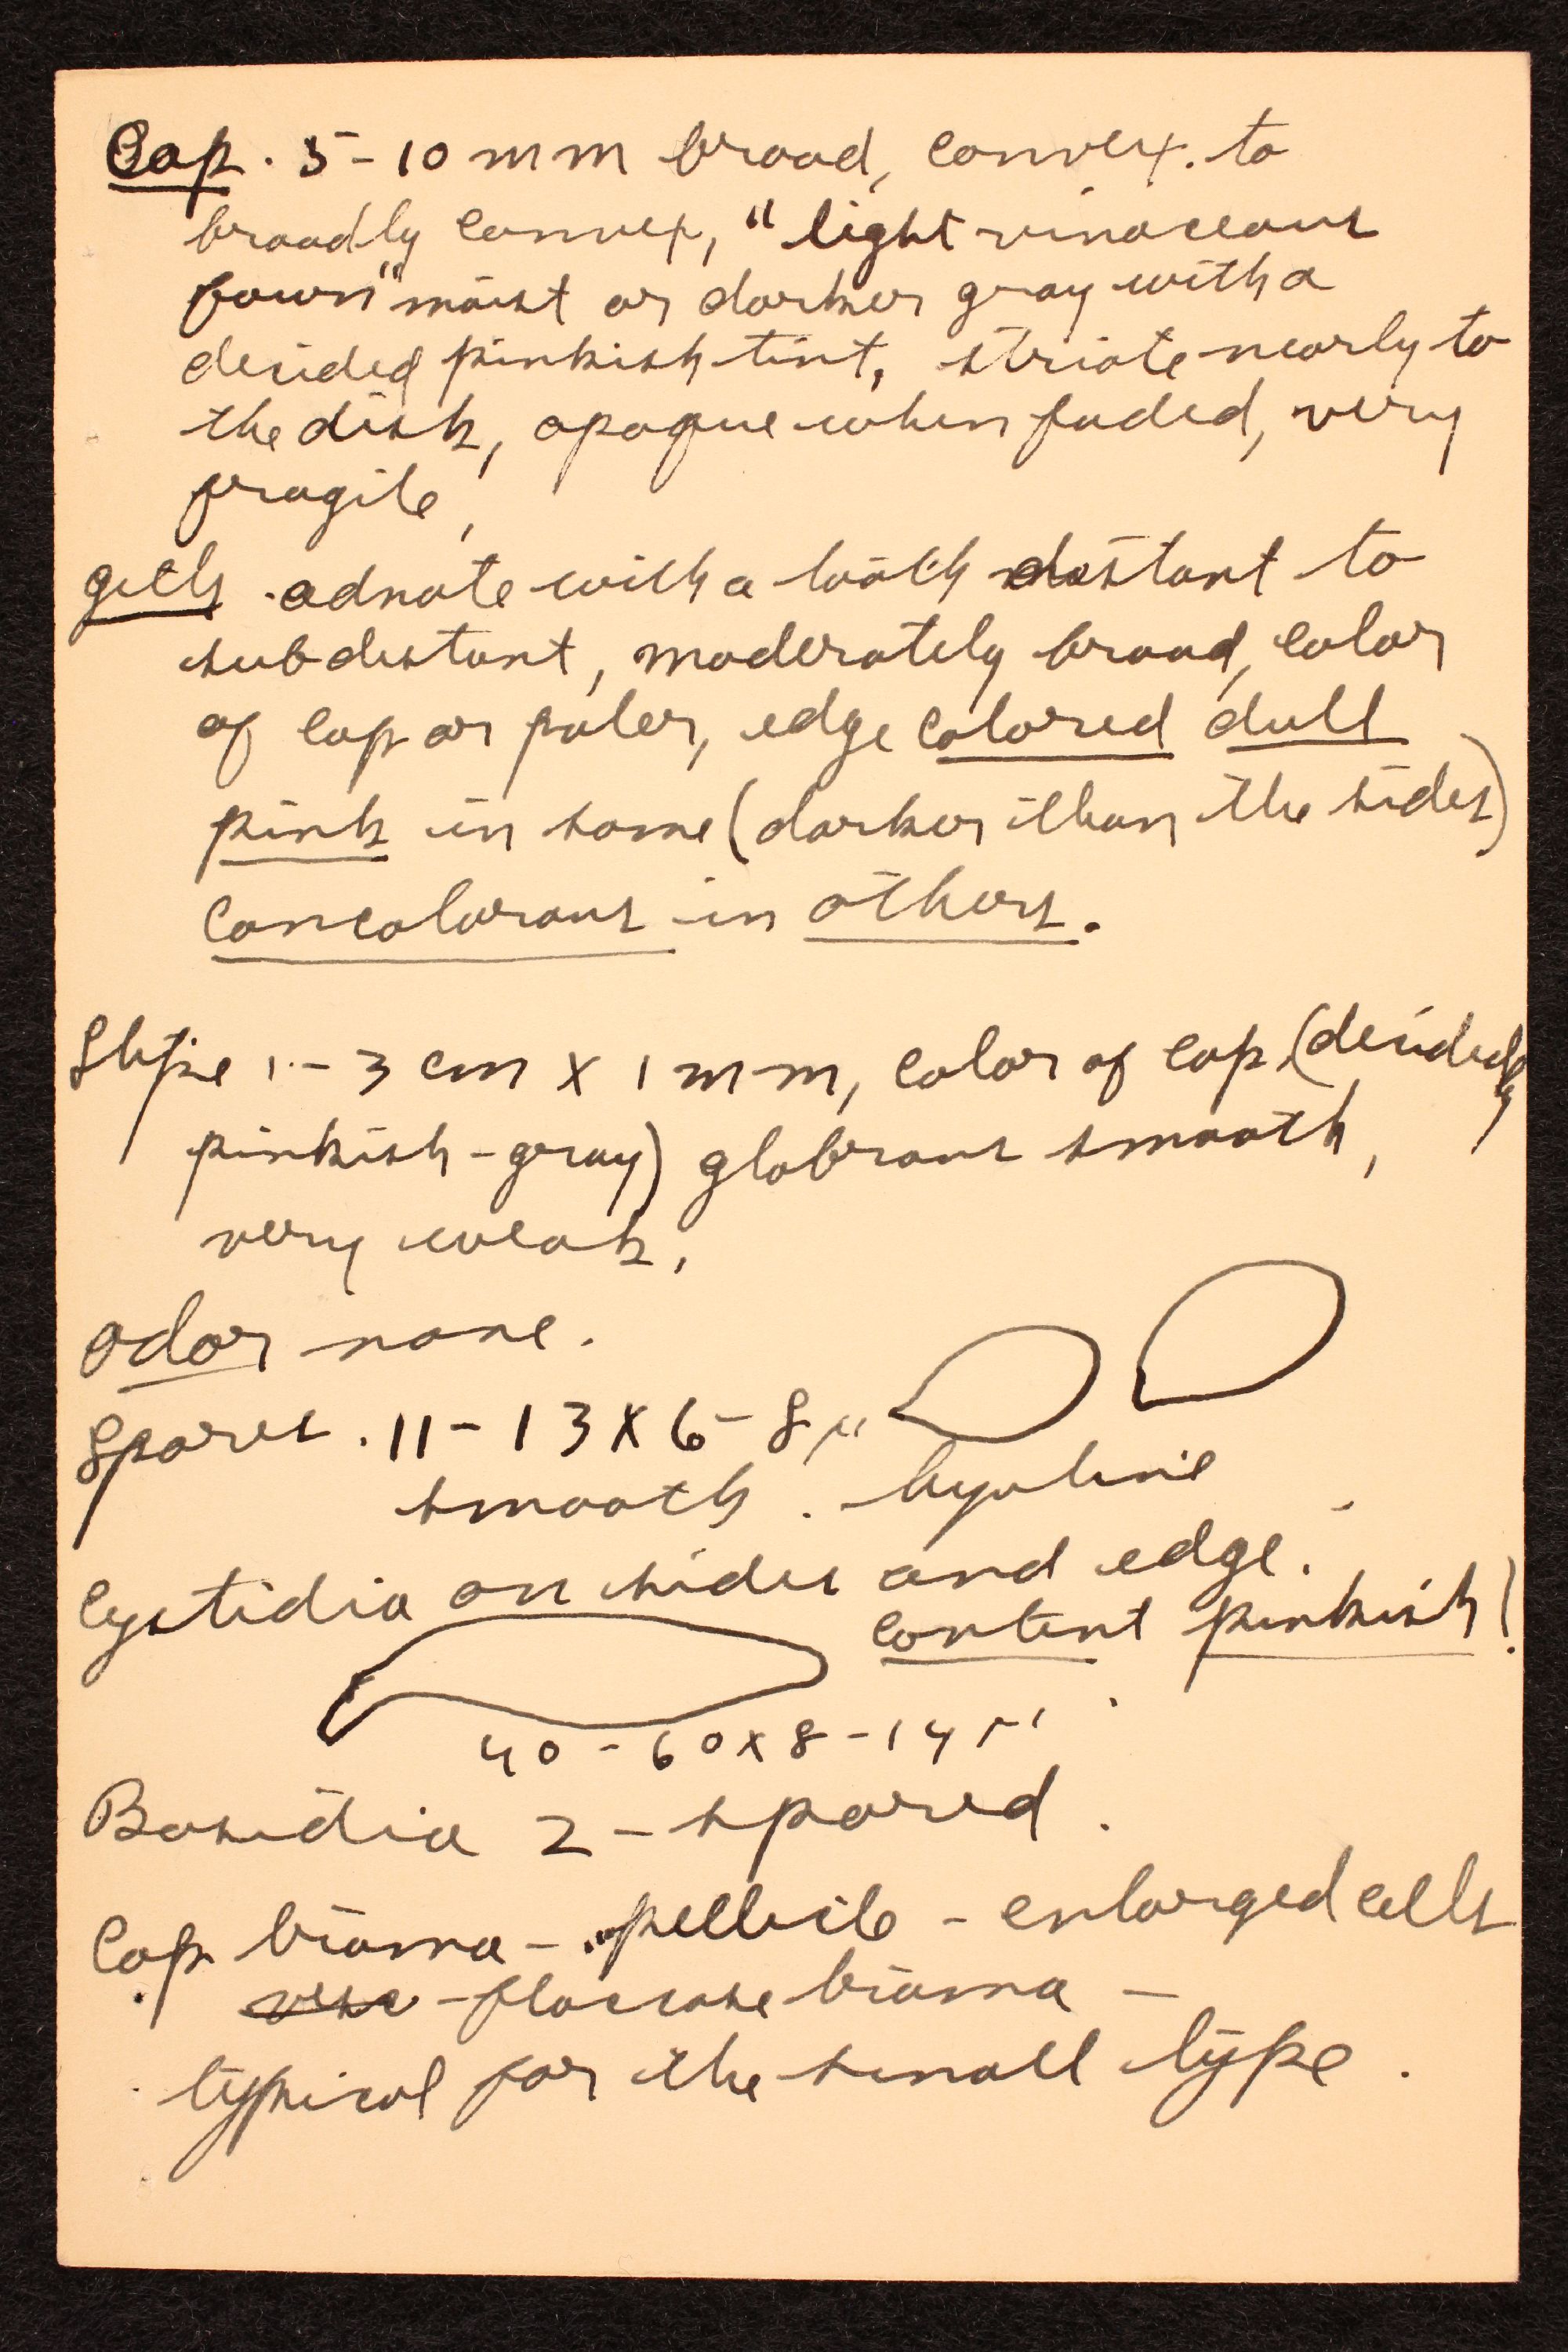 Cap. 5-10 mm broad, convex to
broadly convex, "light vinaceous
fawn" moist or darker gray with a
decided pinkish tint, striate nearly to
the disk, opaque when faded, very
fragile,
gills. adnate with a tooth distant to
subdistant, moderately broad, color
of cap or paler, edge colored dull
pink in some (darker than the sides)
concolorous in others.
Stipe 1-3 cm X 1 mm, color of cap (decidedly
pinkish-gray) glabrous smooth,
very weak,
odor none.
Spores. 11-13 X 6-8 µ
smooth. hyaline
Cystidia on sides and edge.
content pinkish!
40-60 x 8-14 µ
Basidia 2-spored.
Cap trama - pellicle - enlarged cells
- floccose trama -
typical for the small type.